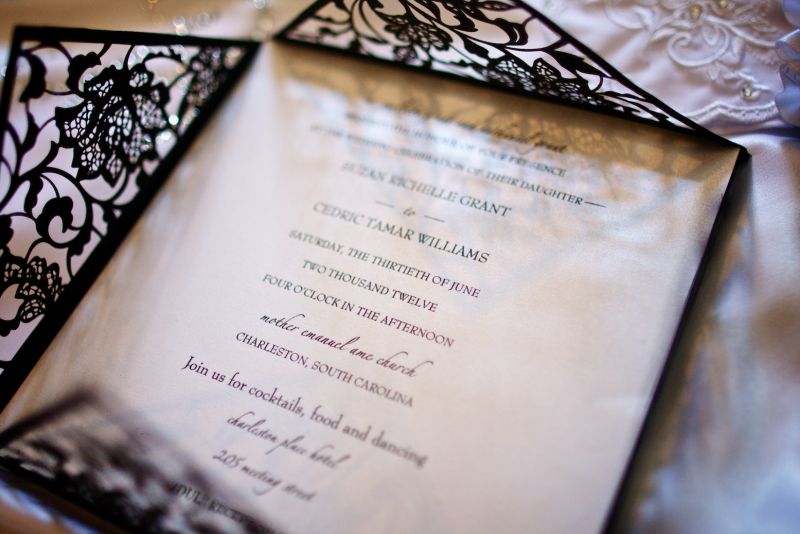 THE HONOUR OF YOUR PRESENCE
WEDDING CELEBRATION OF THEIR DAUGHTER
SUZAN RICHELLE GRANT
to
CEDRIC TAMAR WILLIAMS
SATURDAY, THE THIRTIETH OF JUNE
TWO THOUSAND TWELVE
FOUR O'CLOCK IN THE AFTERNOON
mother emanuel ame church
CHARLESTON, SOUTH CAROLINA
Join us for cocktails, food and dancing
charleston place hotel
205 meeting street